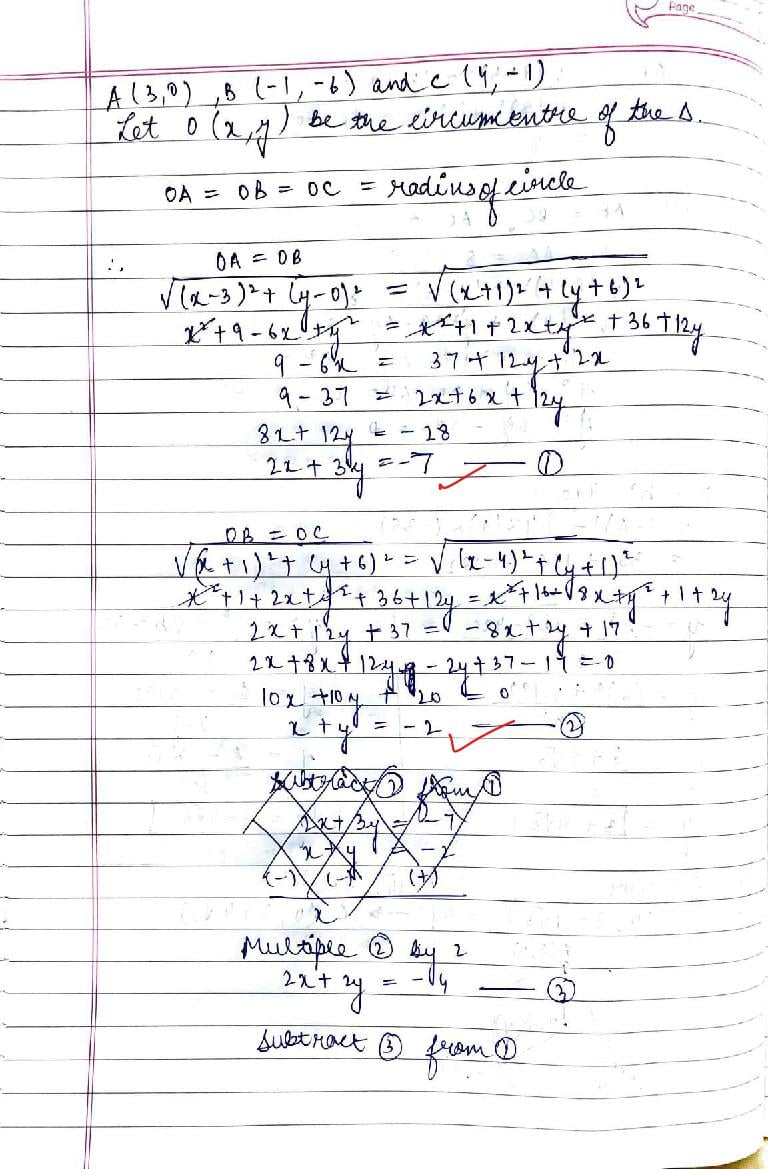 Page
A(3,0) , B (-1, -6) and C (4, -1)
Let O (x, y) be the circumcentre of the Δ.
OA = OB = OC = radius of circle
∴ OA = OB
√(x-3)² + (y-0)² = √(x+1)² + (y+6)²
x² + 9 - 6x + y² = x² + 1 + 2x + y² + 36 + 12y
9 - 6x = 37 + 12y + 2x
9 - 37 = 2x + 6x + 12y
8x + 12y = -28
2x + 3y = -7 —— ①
OB = OC
√(x+1)² + (y+6)² = √(x-4)² + (y+1)²
x² + 1 + 2x + y² + 36 + 12y = x² + 16 - 8x + y² + 1 + 2y
2x + 12y + 37 = -8x + 2y + 17
2x + 8x + 12y - 2y + 37 - 17 = 0
10x + 10y + 20 = 0
x + y = -2 —— ②
Subtract ② from ①
2x + 3y = -7
x + y = -2
(-) (-) (+)
x
Multiple ② by 2
2x + 2y = -4 —— ③
Subtract ③ from ①